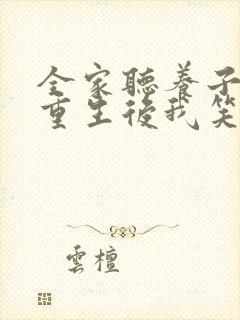 全家聽養子
重生後我笑
雲檀